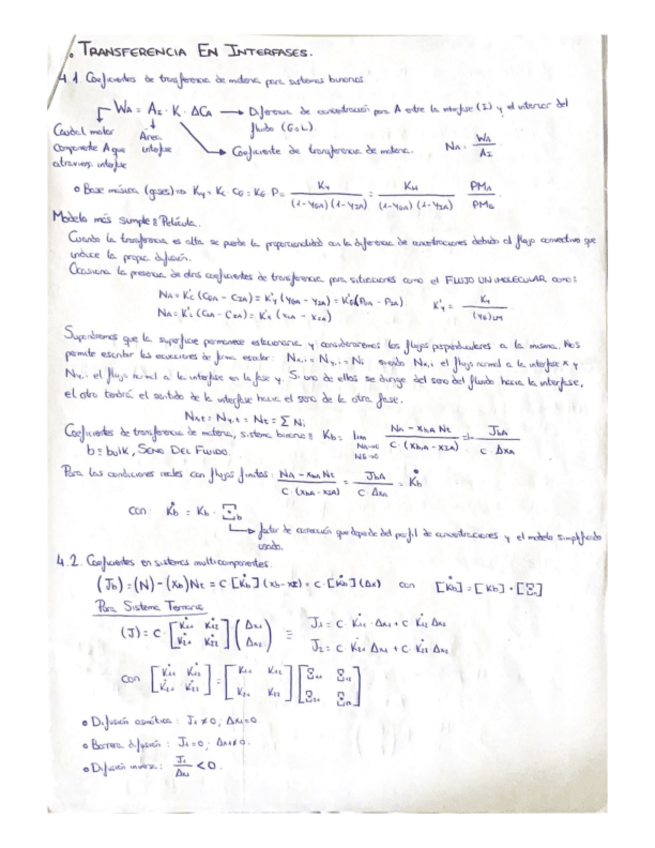 . TRANSFERENCIA EN INTERFASES.
4.1. Coeficientes de trasferencia de materia para sistemas binarios
WA = AI · K · ΔCA → Diferencia de concentración para A entre la interfase (I) y el interior del
fluido (G o L).
Caudal molar Área
Componente A que interfase → Coeficiente de transferencia de materia. NA = WA / AI
atraviesa interfase
o Base másica (gases) => Ky = Kc CG = KG P = Ky / (1-yGA)(1-yIA) = KH / (1-yGA)(1-yIA) PMA / PMG
Modelo más simple: Película.
Cuando la transferencia es alta se pierde la proporcionalidad con la diferencia de concentraciones debido al flujo convectivo que
induce la propia difusión.
Ocasiona la presencia de otros coeficientes de transferencia para situaciones como el FLUJO UNIMOLECULAR como:
NA = K'c (CGA - CIA) = K'y (yGA - yIA) = K'G (PGA - PIA) K'y = Ky / (yB)LM
NA = K'L (CLA - CIA) = K'x (xLA - xIA)
Supondremos que la superficie permanece estacionaria y consideraremos los flujos perpendiculares a la misma. Nos
permite escribir las ecuaciones de forma escalar: Nx,i = Ny,i = Ni siendo Nx,i el flujo normal a la interfase x y
Ny,i el flujo normal a la interfase en la fase y. Si uno de ellos se dirige del seno del fluido hacia la interfase,
el otro tendrá el sentido de la interfase hacia el seno de la otra fase.
Nx,t = Ny,t = Nt = Σ Ni
Coeficientes de transferencia de materia, sistema binario: Kb = lim NA→0 NB→0 NA - xbA Nt / C · (xbA - xIA) = JbA / C · ΔxA
b = bulk, SENO DEL FLUIDO.
Para las condiciones reales con flujos finitos: NA - xbA Nt / C · (xbA - xIA) = JbA / C · ΔxA = K•b
con: K•b = Kb · Ξb
→ factor de corrección que depende del perfil de concentraciones y el modelo simplificado
usado.
4.2. Coeficientes en sistemas multicomponentes.
(Jb) = (N) - (xb)Nt = C [K•b] (xb - xI) = C · [K•b] (Δx) con [K•b] = [Kb] · [Ξb]
Para Sistema Ternario
(J) = C · [K•11 K•12 K•21 K•22] (Δx1 Δx2) ≡ J1 = C · K•11 · Δx1 + C · K•12 Δx2
J2 = C · K•21 Δx1 + C · K•22 Δx2
con [K•11 K•12 K•21 K•22] = [K11 K12 K21 K22] [Ξ11 Ξ12 Ξ21 Ξ22]
o Difusión osmótica: J1 ≠ 0; Δx1 = 0.
o Barrera difusión: J1 = 0; Δx1 ≠ 0.
o Difusión inversa: J1 / Δx1 < 0.